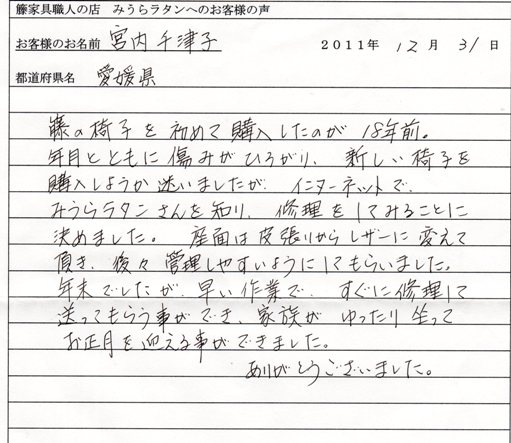 籐家具職人の店　みうらラタンへのお客様の声
お客様のお名前 宮内 千津子 2011年 12月 31日
都道府県名 愛媛県
藤の椅子を初めて購入したのが 18年前。
年月とともに傷みがひろがり、新しい椅子を
購入しようか迷いましたが、インターネットで、
みうらラタンさんを知り、修理をしてみることに
決めました。座面は皮張りからレザーに変えて
頂き、後々管理しやすいようにしてもらいました。
年末でしたが、早い作業で、すぐに修理して
送ってもらう事ができ、家族がゆったり坐って
お正月を迎える事ができました。
ありがとうございました。